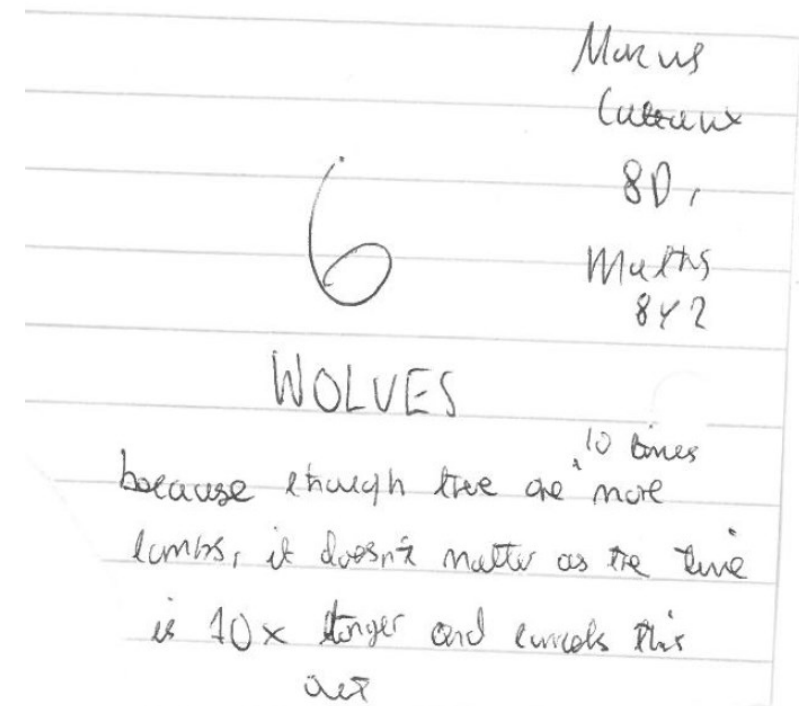 Marcus
8D,
Maths
8Y2
6
WOLVES
10 times
because though there are ^ more
lambs, it doesn't matter as the time
is 10x longer and cancels this
out